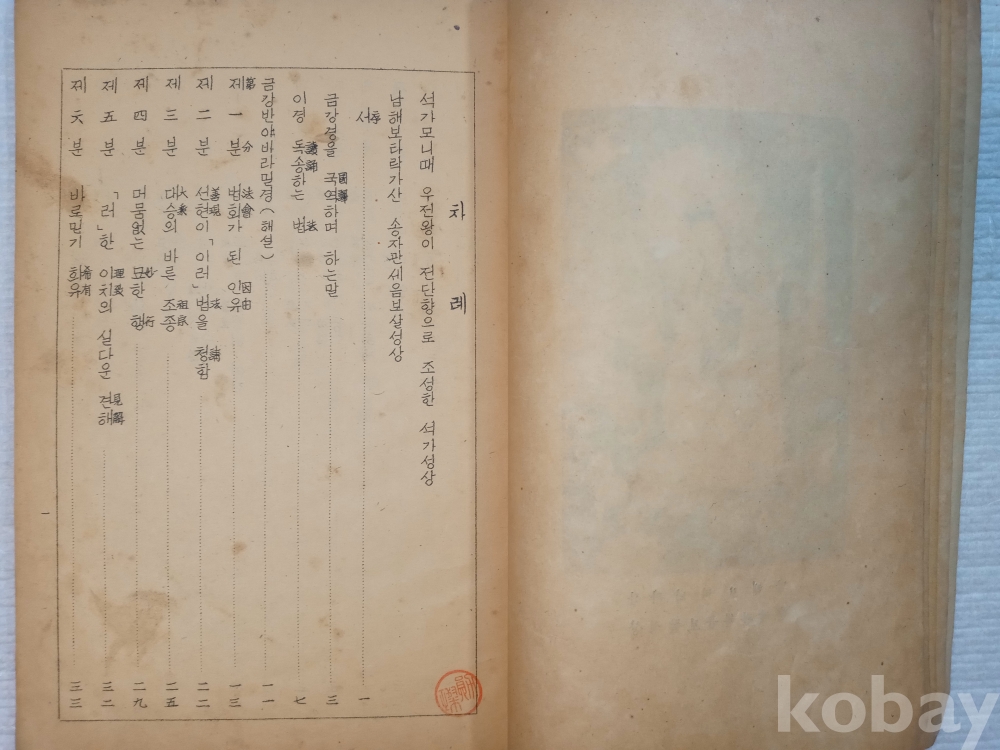 차례
석가모니때 우전왕이 전단향으로 조성한 석가성상
남해보타락가산 송자관세음보살성상
서序 一
금강경을 국역國譯하며 하는말 三
이경 독송讀誦하는 법法 七
금강반야바라밀경(해설) 一一
제第一분分 법회法會가 된 인유因由 一三
제二분 선현善現이「이러」법法을 청請함 二二
제三분 대승大乘의 바른 조종祖宗 二五
제四분 머뭄없는 묘妙한 행行 二九
제五분 「러」한 이치理致의 실다운 견해見解 三二
제六분 바로믿기 희유希有 三三
一
kobay